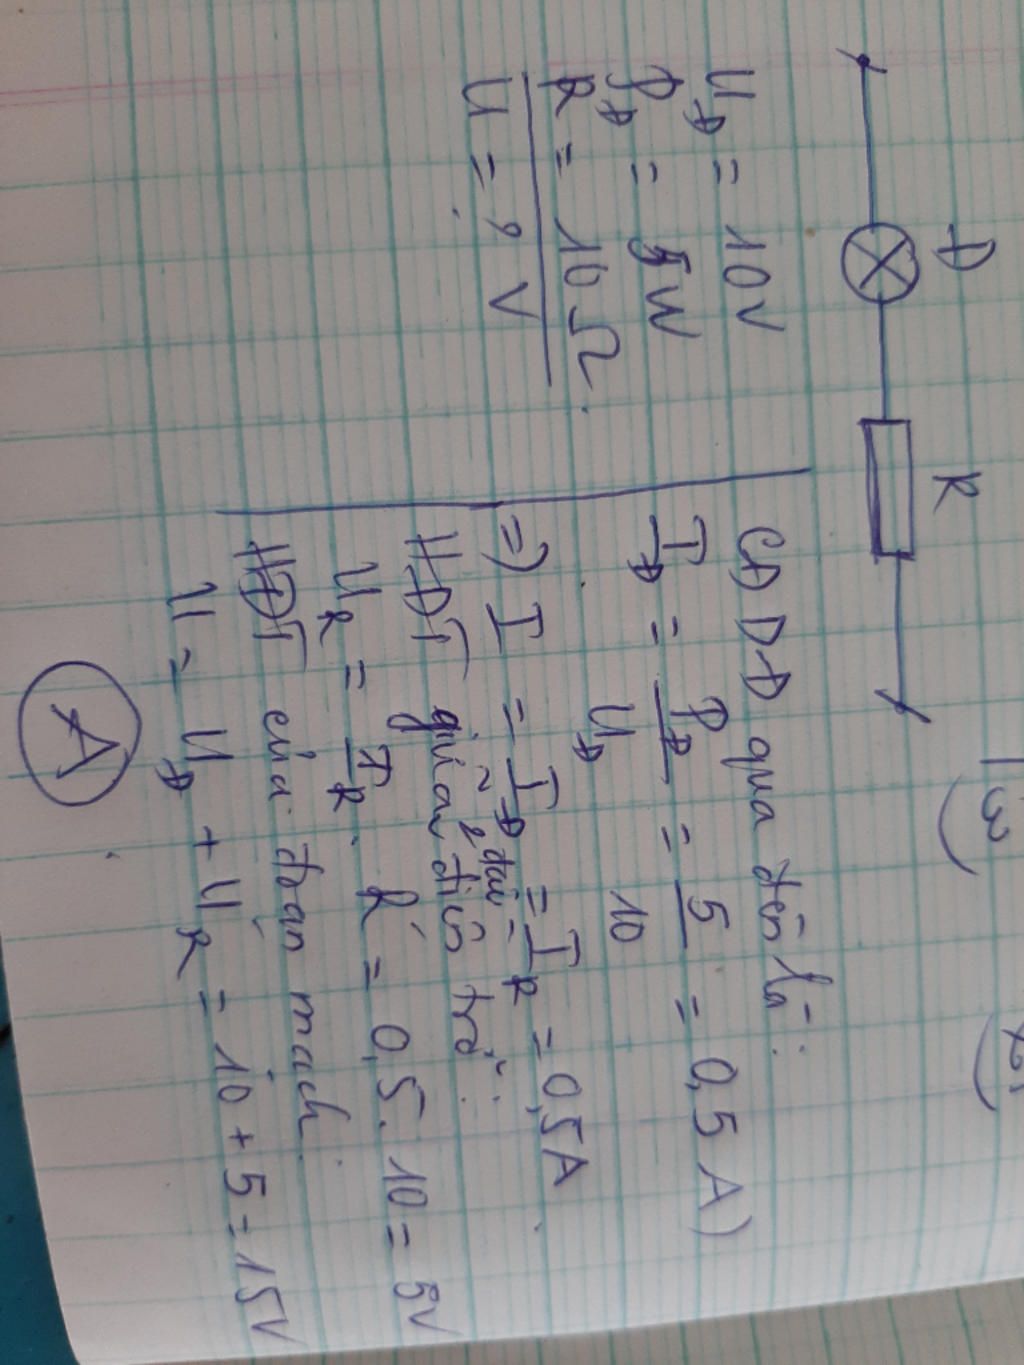 Đ
R
U_Đ = 10V
P_Đ = 5W
R = 10Ω
U = ? V
CĐDĐ qua đèn là:
I_Đ = P_Đ / U_Đ = 5 / 10 = 0,5 A)
=) I = I_Đ = I_R = 0,5A
HĐT giữa 2 đầu điện trở:
U_R = I_R . R = 0,5 . 10 = 5V
HĐT của đoạn mạch:
U = U_Đ + U_R = 10 + 5 = 15V
A